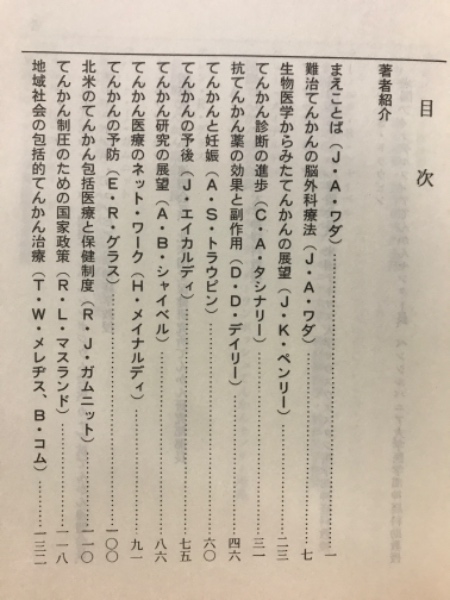 目次
著者紹介
まえことば（J・A・ワダ）…………一
難治てんかんの脳外科療法（J・A・ワダ）…………七
生物医学からみたてんかんの展望（J・K・ペンリー）…………二三
てんかん診断の進歩（C・A・タシナリー）…………三一
抗てんかん薬の効果と副作用（D・D・デイリー）…………四六
てんかんと妊娠（A・S・トラウピン）…………六〇
てんかんの予後（J・エイカルディ）…………七五
てんかん研究の展望（A・B・シャイベル）…………八六
てんかん医療のネット・ワーク（H・メイナルディ）…………九一
てんかんの予防（E・R・グラス）…………一〇〇
北米のてんかん包括医療と保健制度（R・J・ガムニット）…………一一〇
てんかん制圧のための国家政策（R・L・マスランド）…………一一八
地域社会の包括的てんかん治療（T・W・メレヂス、B・コム）…………一三二